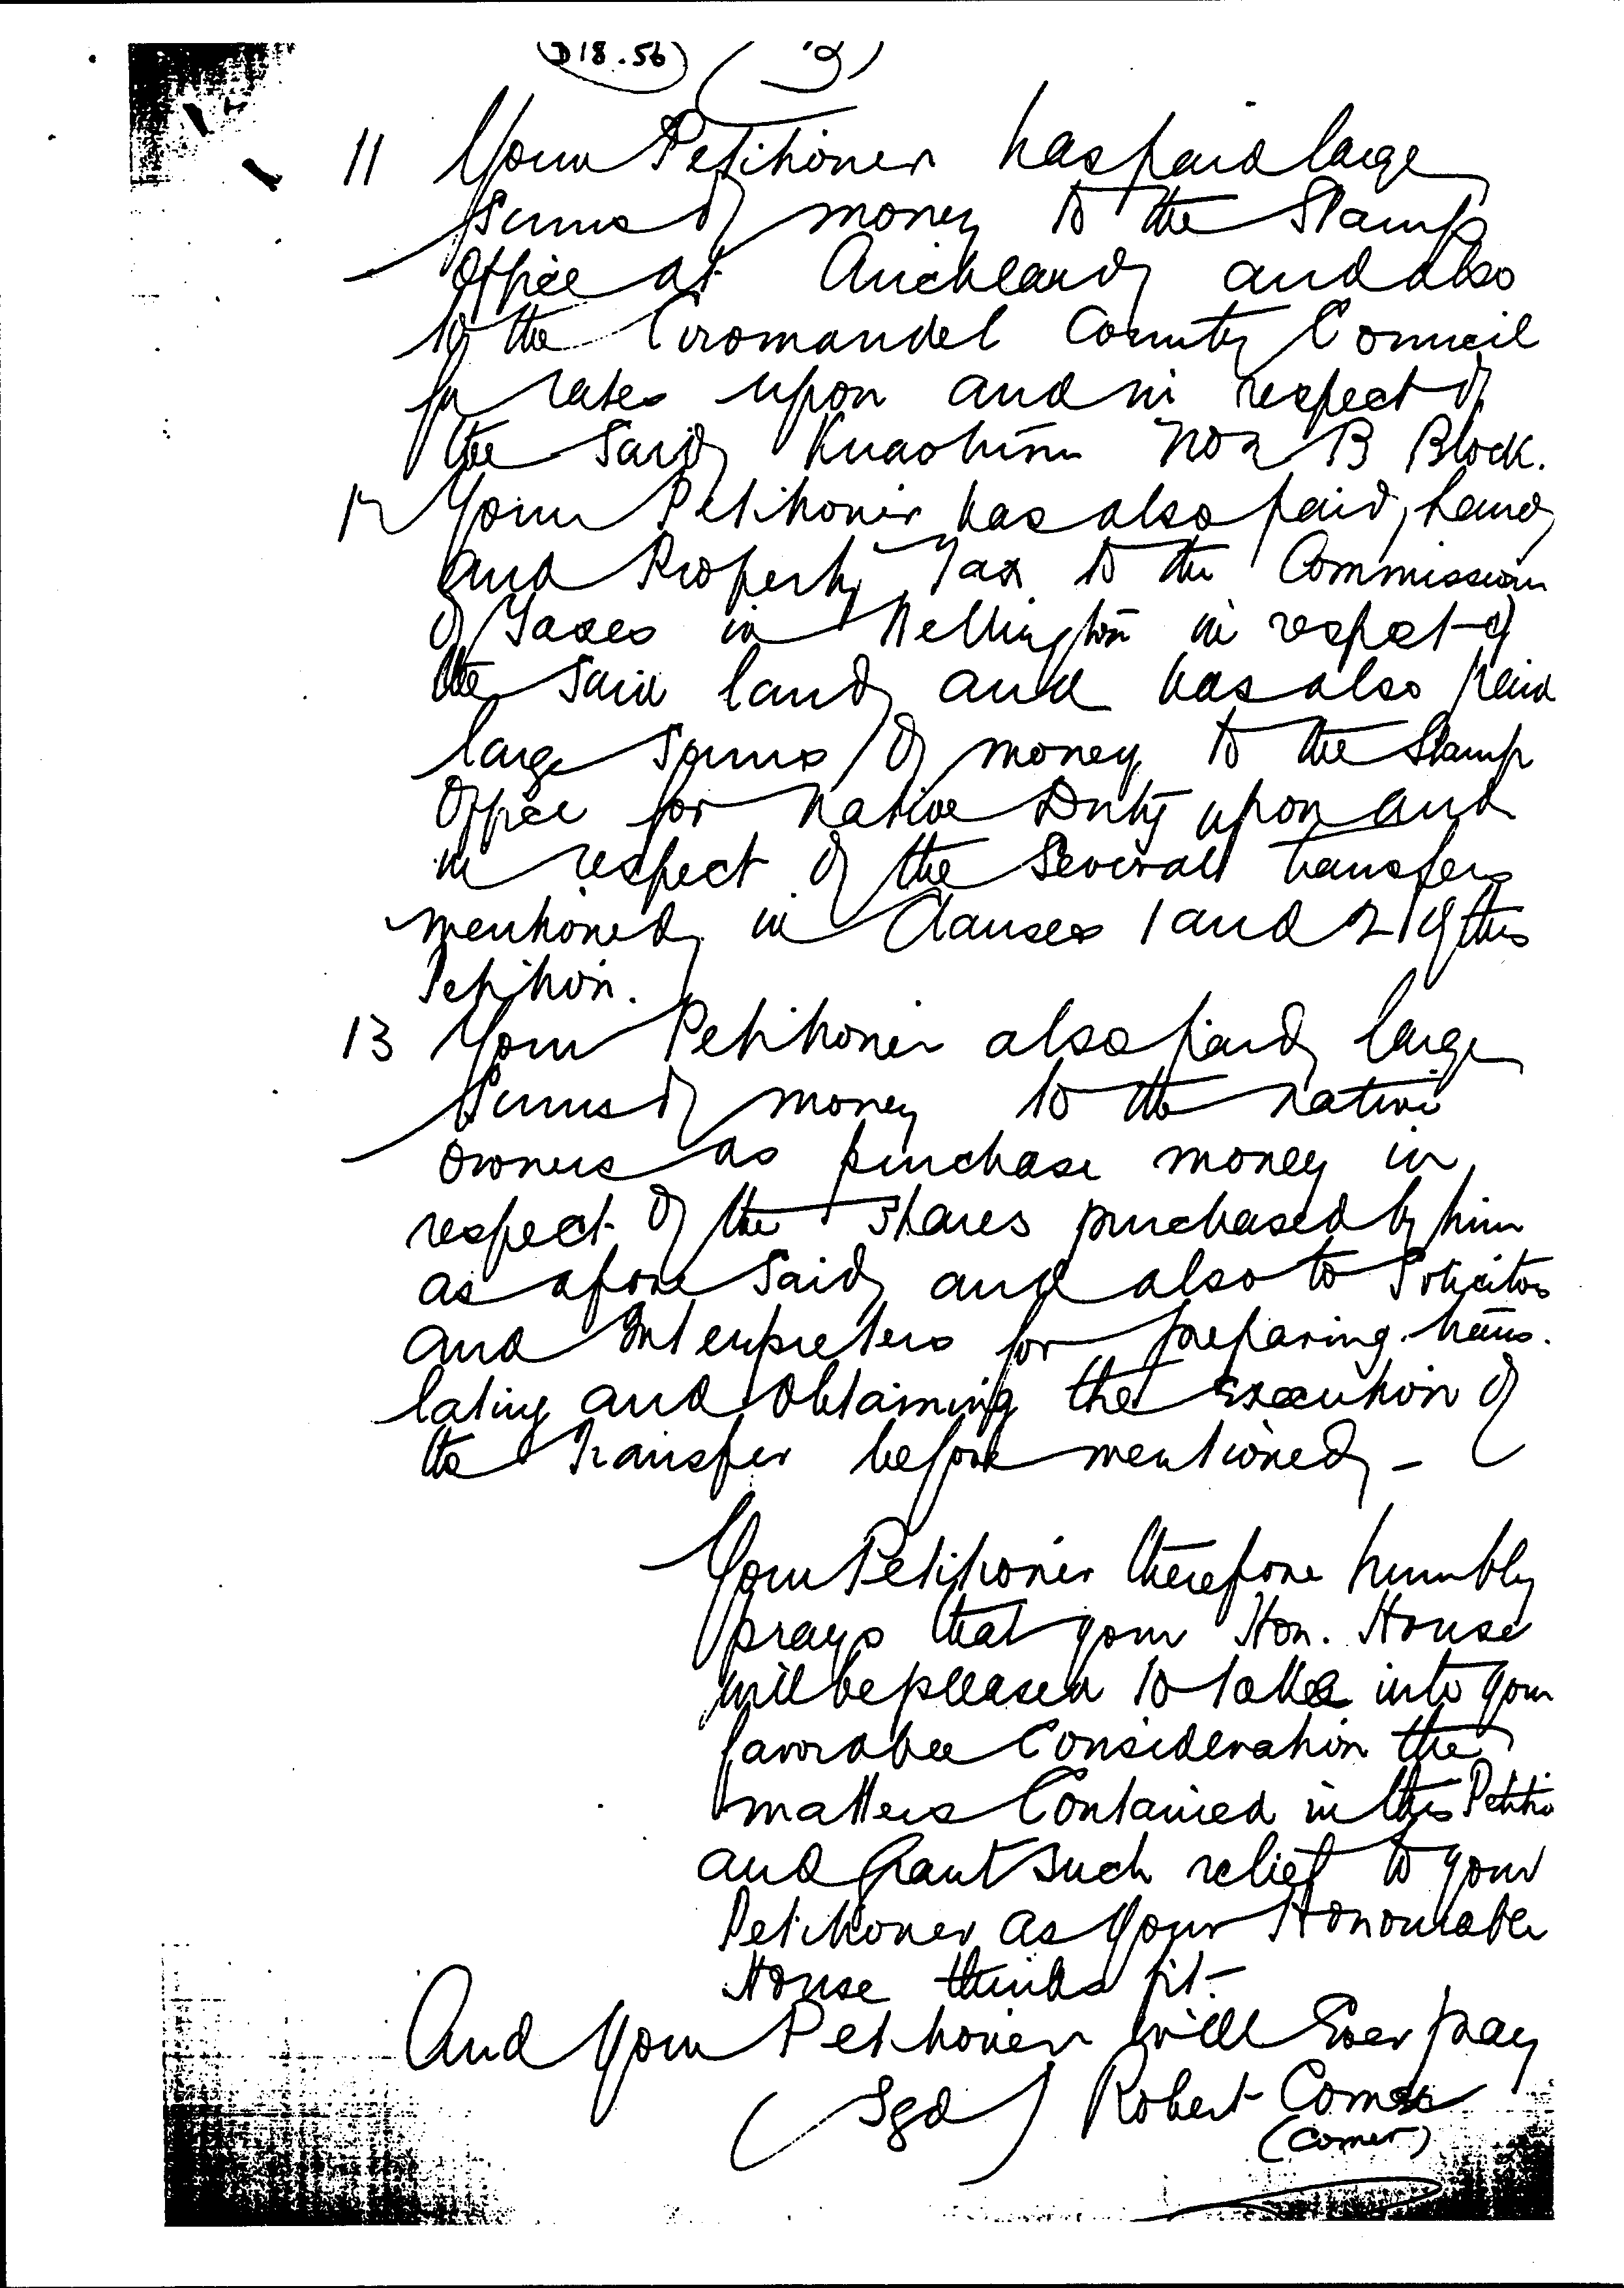 D18.56 (9)
11 Your Petitioner has paid large
sums of money to the Stamp
Office at Auckland and also
to the Coromandel County Council
for rates upon and in respect of
the said Kuaotunu No 2 B Block.
12 Your Petitioner has also paid, Land
and Property Tax to the Commissioner
of Taxes in Wellington in respect of
the said land and has also paid
large sums of money to the Stamp
Office for Native Duty upon and
in respect of the several transfers
mentioned in Clauses 1 and 2 of this
Petition.
13 Your Petitioner also paid large
sums of money to the native
owners as purchase money in
respect of the shares purchased by him
as afore said and also to Solicitors
and Interpreters for preparing trans-
lating and obtaining the execution of
the Transfer before mentioned -
Your Petitioner therefore humbly
prays that your Hon. House
will be pleased to take into your
favorable Consideration the
matters Contained in this Petitio
and Grant such relief to your
Petitioner as your Honourable
House thinks fit -
And your Petitioner will Ever pray
(Sgd) Robert Comer
(Comer)